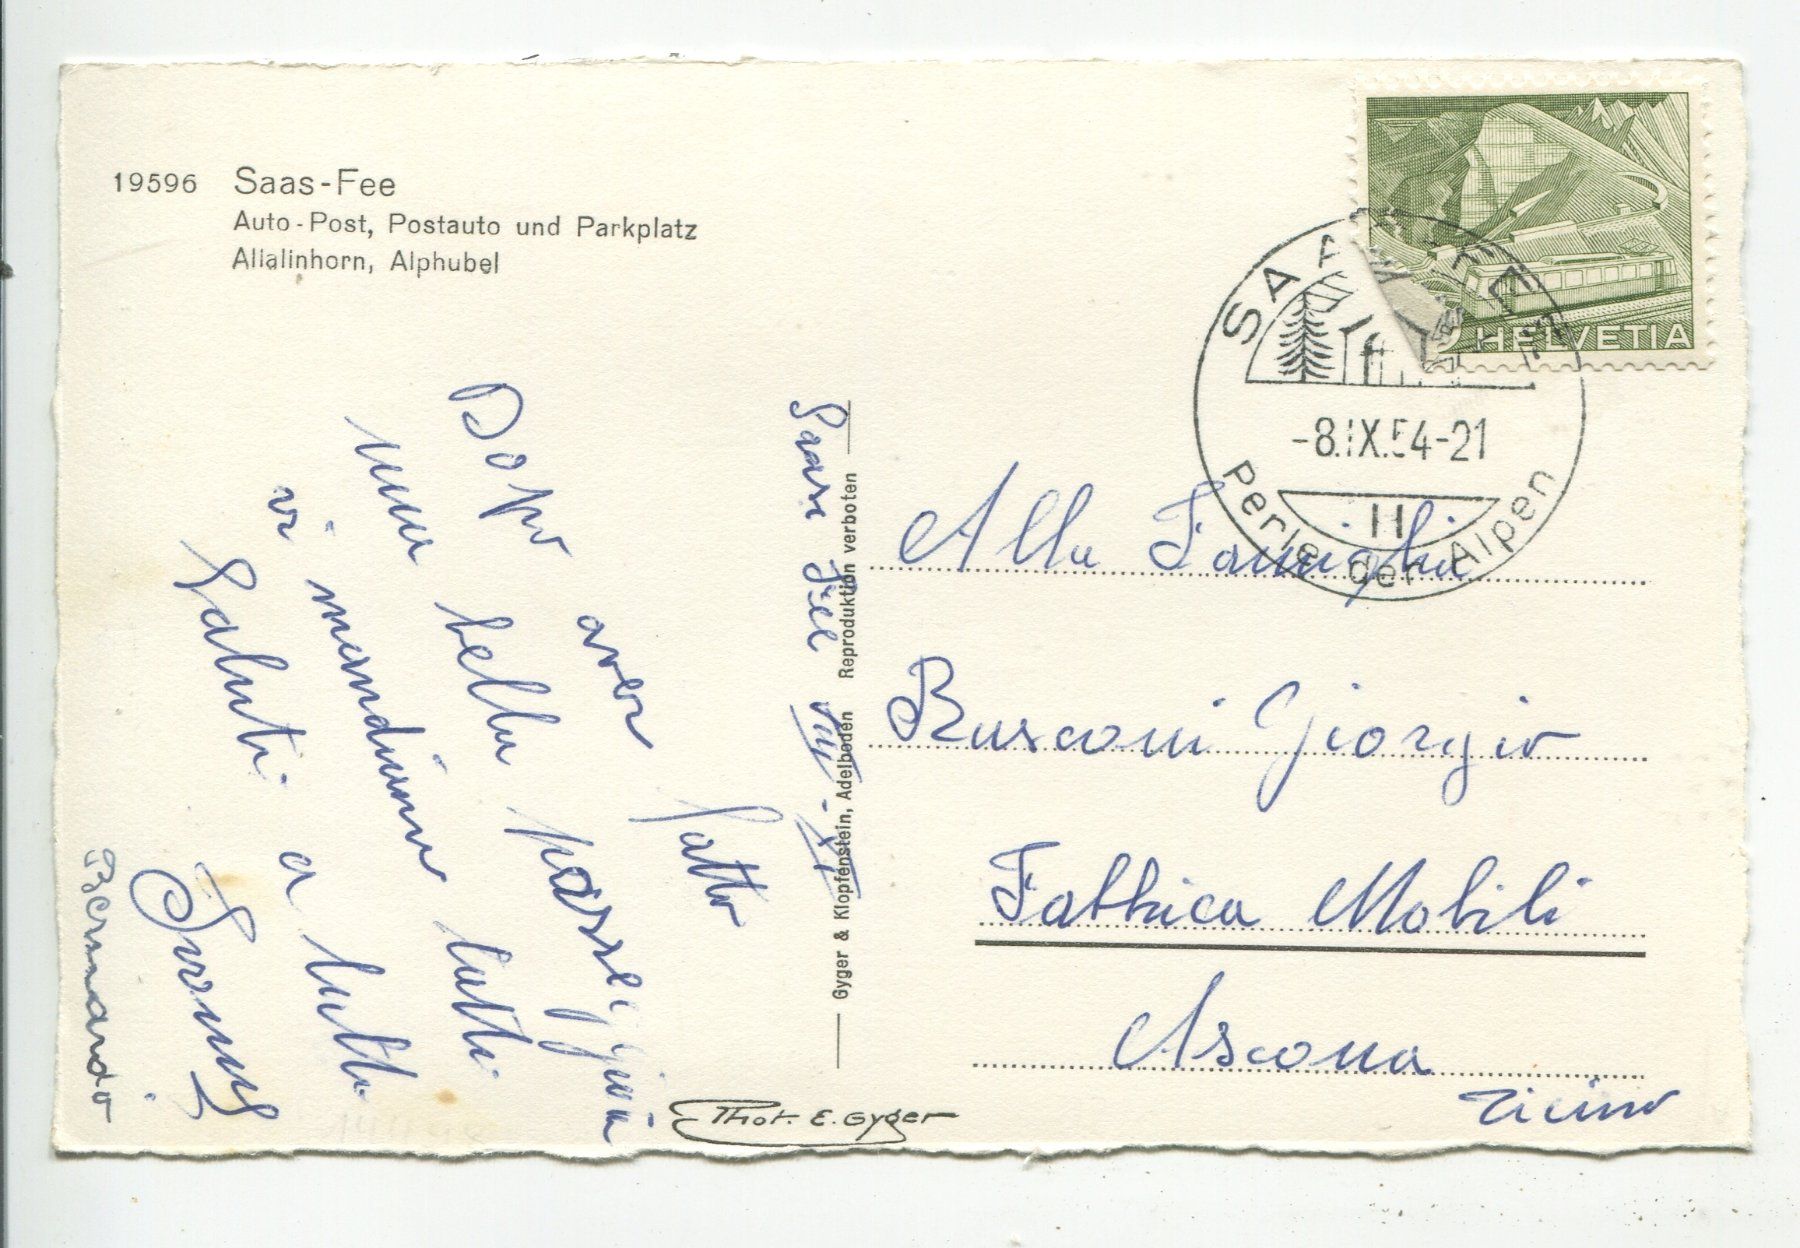 19596 Saas-Fee
Auto-Post, Postauto und Parkplatz
Allalinhorn, Alphubel
Saase Fee
Dopo aver fatto
una bella passeggiata
vi mandiamo tutti
Saluti a tutti
Bernardo
Reproduktion verboten
Gyger & Klopfenstein, Adelboden
Phot. E. Gyger
HELVETIA
SAAS-FEE
-8.IX.54-21
H
Perle der Alpen
Alla Famiglia
Rusconi Giorgio
Fabbrica Mobili
Ascona
Ticino